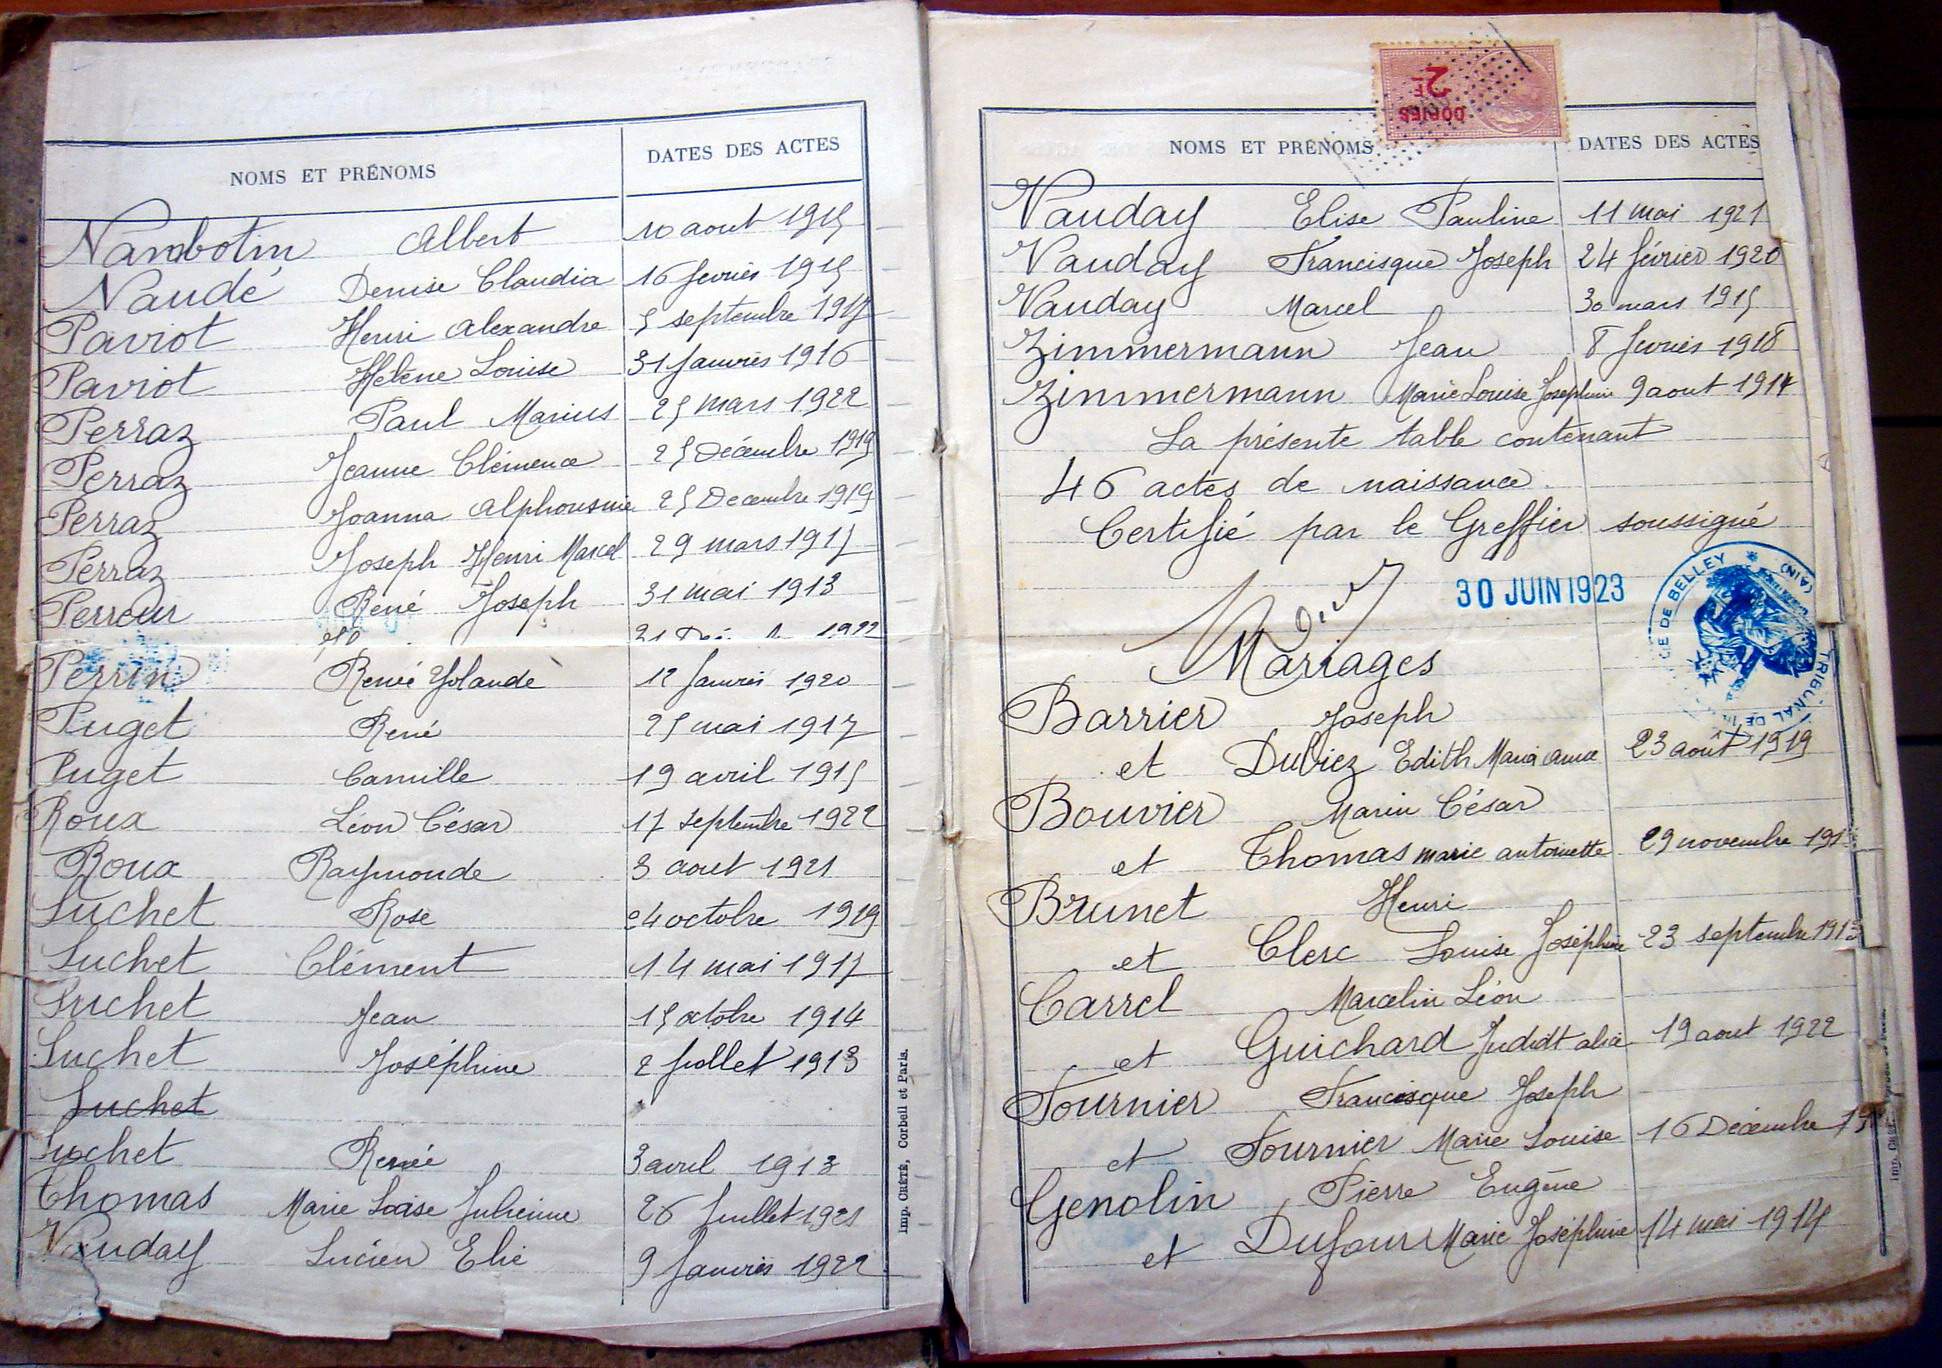 NOMS ET PRÉNOMS DATES DES ACTES
Nambotin Albert 10 aout 1915
Naudé Denise Claudia 16 fevrier 1915
Paviot Henri Alexandre 5 septembre 1917
Paviot Helène Louise 31 Janvier 1916
Perraz Paul Marius 25 mars 1922
Perraz Jeanne Clémence 25 Décembre 1919
Perraz Joanna Alphonsine 25 Decembre 1919
Perraz Joseph Henri Marcel 29 mars 1915
Perreur René Joseph 31 mai 1913
1922
Perrin Renée Yolande 12 Janvier 1920
Puget René 25 mai 1917
Puget Camille 19 avril 1915
Roux Léon César 17 septembre 1922
Roux Raymonde 3 aout 1921
Suchet Rose 24 octobre 1919
Suchet Clément 14 mai 1917
Suchet Jean 15 octobre 1914
Suchet Joséphine 2 Juillet 1913
Suchet
Suchet Renée 3 avril 1913
Thomas Marie Loise Julienne 26 Juillet 1921
Vauday Lucien Elie 9 Janvier 1922
Imp. CRÉTÉ, Corbeil et Paris.
2F
DOUBLES
NOMS ET PRÉNOMS DATES DES ACTES
Vauday Elise Pauline 11 mai 1921
Vauday Francisque Joseph 24 février 1920
Vauday Marcel 30 mars 1915
Zimmermann Jean 8 fevrier 1918
Zimmermann Marie Louise Josephine 9 aout 1914
La présente table contenant
46 actes de naissance.
Certifié par le Greffier soussigné
30 JUIN 1923
CE DE BELLEY * (AIN) TRIBUNAL DE 1
Mariages
Barrier Joseph
et Duviez Edith Maria 23 août 1919
Bouvier Marin César
et Thomas marie antoinette 29 novembre 191
Brunet Henri
et Clerc Louise Joséphine 23 septembre 1913
Carrel Marcelin Léon
et Guichard 19 aout 1922
Fournier Francisque Joseph
et Fournier Marie Louise 16 Décembre 19
Genolin Pierre Eugène
et Dufour Marie Joséphine 14 mai 1914